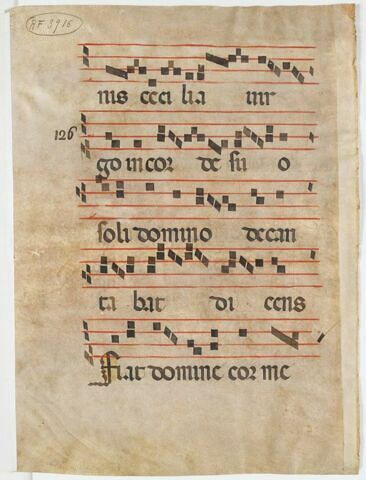 RF 3916
nis ceci lia vir
126
go in cor de su o
soli domino decan
ta bat di cens
Fiat domine cor me